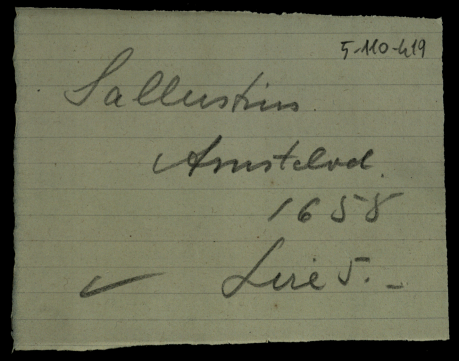 5-110-419
Sallustius
Amstelod.
1658
Lire 5.-